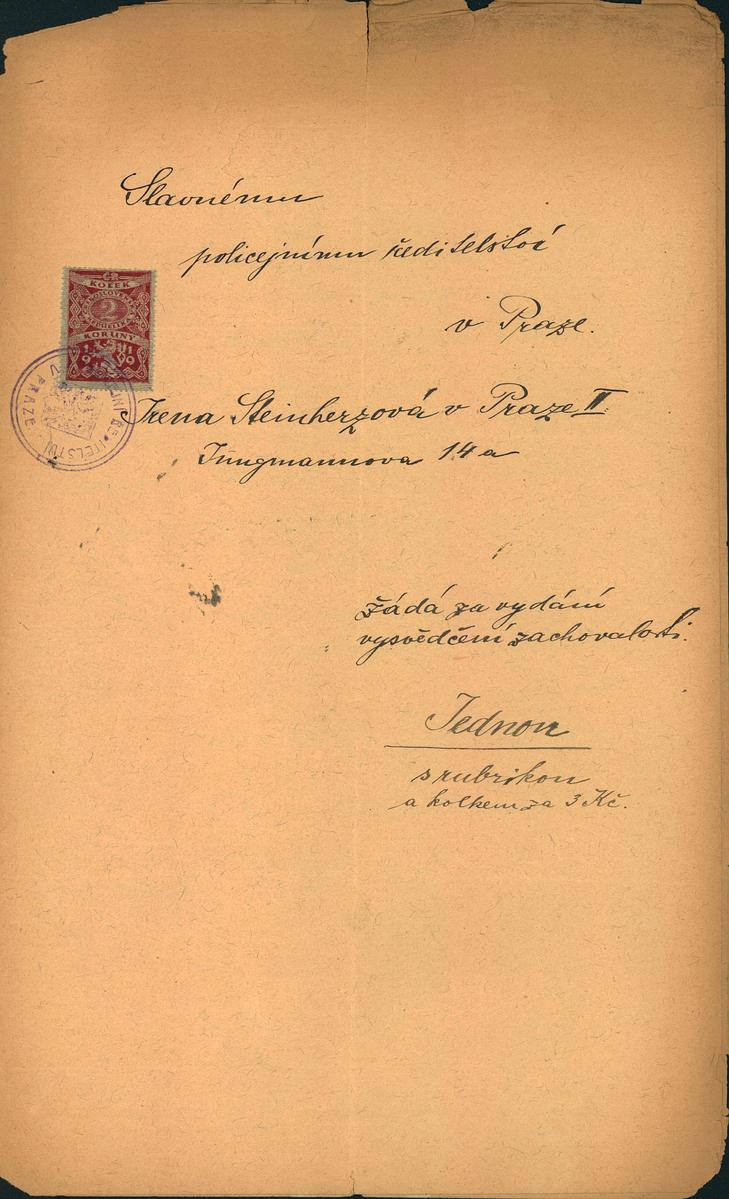 Slavnému
policejnímu ředitelství
v Praze.
KOLEK
2
KORUNY
V PRAZE
Irena Steinherzová v Praze II.
Jungmannova 14 a
žádá za vydání
vysvědčení zachovalosti.
Jednou
s rubrikou
a kolkem za 3 Kč.